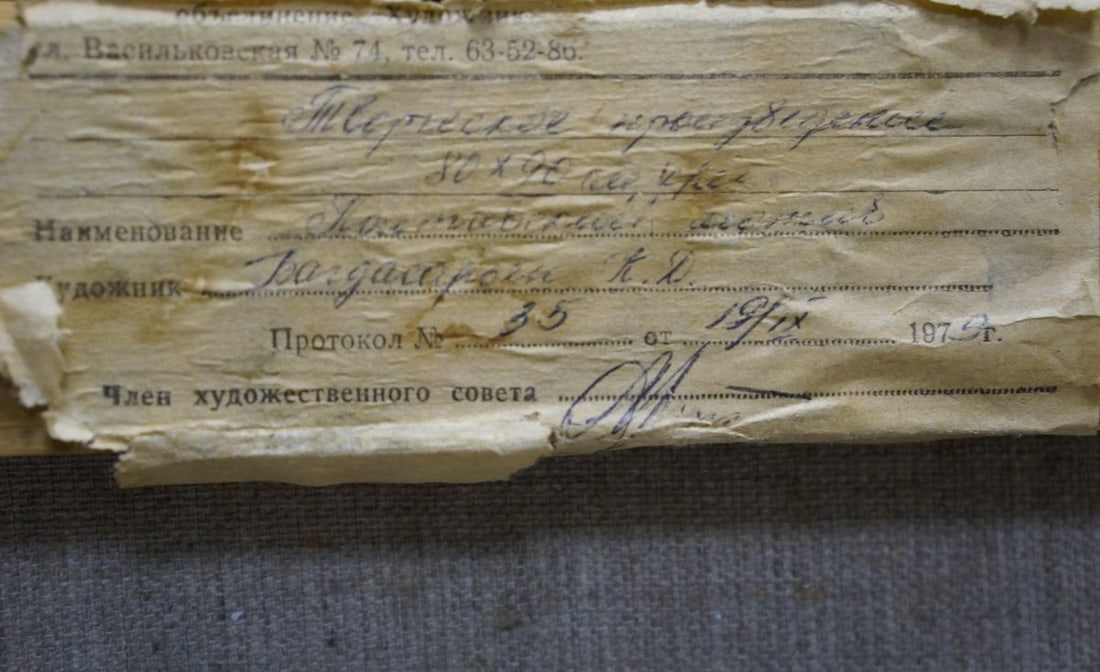 объединение художник
ул. Васильковская № 74, тел. 63-52-86.
Творческое произведение
80 x 90
Наименование
Художник Багдасарьян К. Д.
Протокол № 35 от 19/IX 1979г.
Член художественного совета